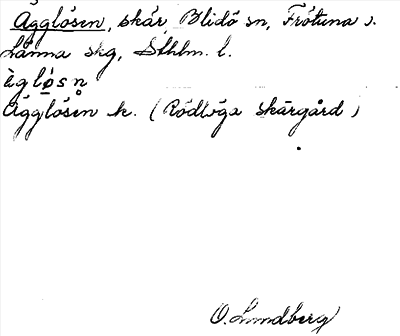 Ägglösen, skär Blidö sn, Frötuna s.
Länna skg, Sthlm. l.
ä̀glø̀sn̥
Ägglösen h. (Rödlöga skärgård)
O. Lundberg